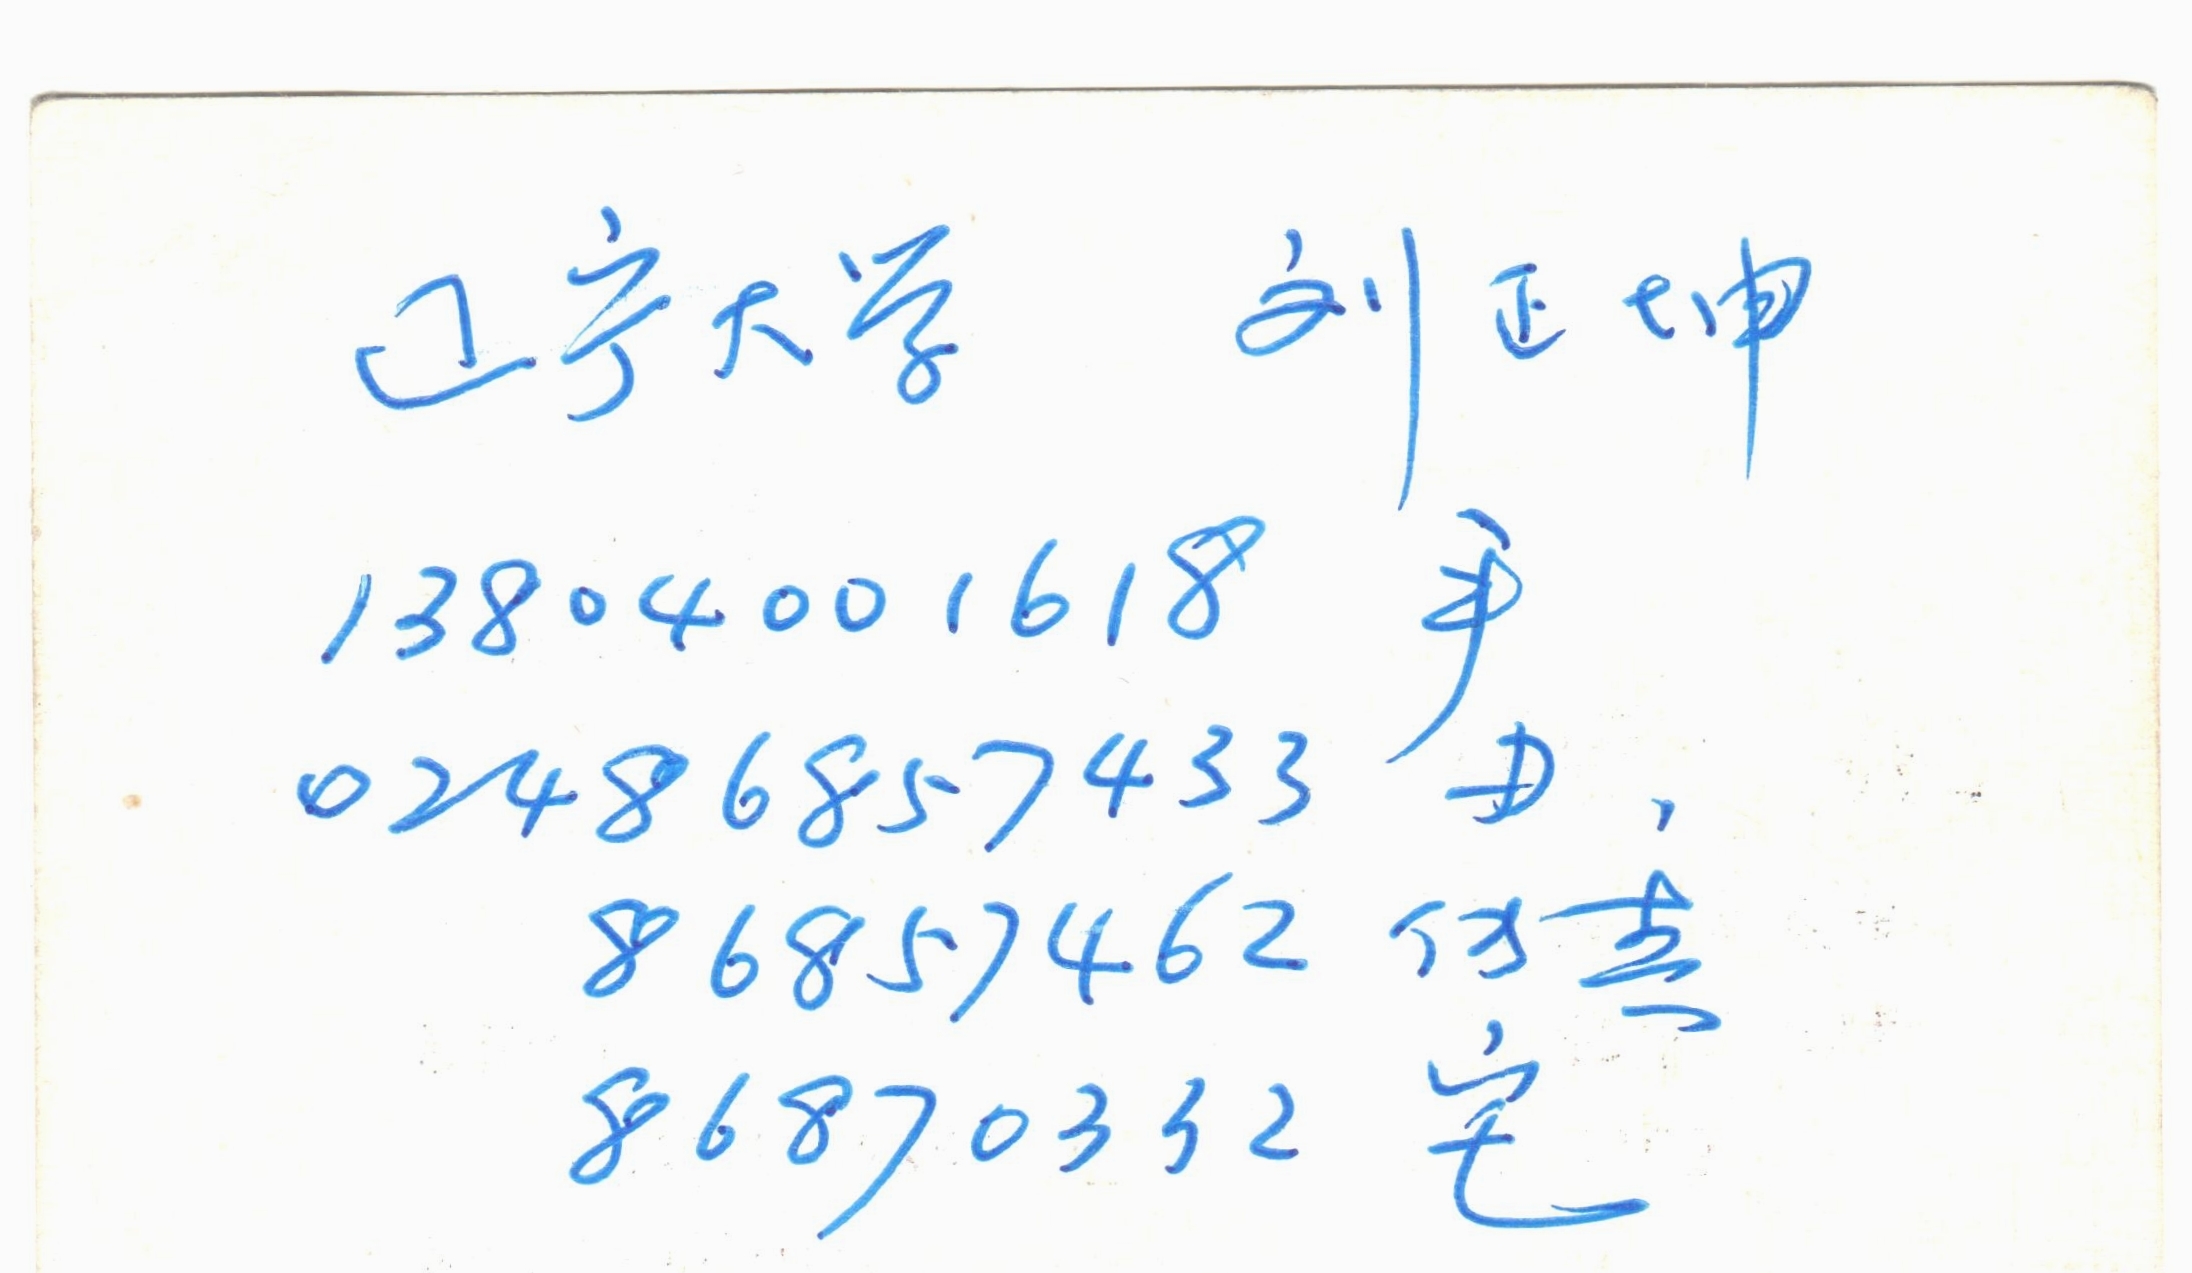 辽宁大学 刘正坤
13804001618 手
02486857433 办
86857462 传真
86870332 宅